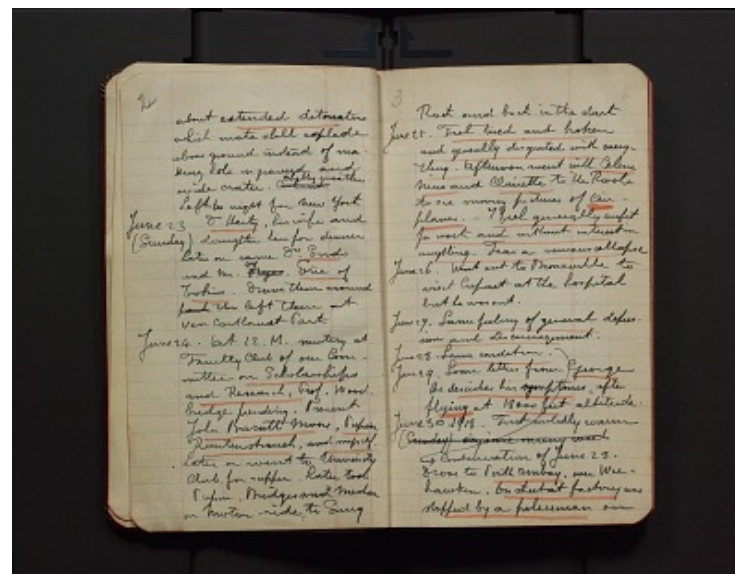 2
about extended detonators
which make shell explode
above ground instead of ma-
king hole in ground and
wide crater.
Left to night for New York
June 23 Hasty, his wife and
(Sunday) daughter here for dinner
later on came Dr.
and Mr. one of
Drove them around
park then left them at
Van Cortlandt Park
June 24. At 12 M. meeting at
Faculty Club of our Com-
mittee on Scholarships
and Research, Prof. Wood-
bridge presiding. Present
John Bassett Moore, Pupin
and myself
Later on went to University
Club for supper. Later took
Pupin, Bridges and
on motor-ride to Sing
3
Point and back in the dark
June 25. Feel tired and broken
and greatly disgusted with every-
thing. Afternoon went with Celine
Nina and to the Rivoli
to see moving pictures of
planes. - I feel generally unfit
for work and without interest in
anything. Fear a nervous collapse
June 26. Went out to Bronxville to
visit at the hospital
but he was out.
June 27. Same feeling of general depres-
sion and discouragement.
June 28. Same condition.
June 29. Some letters from George
he describes his symptoms, after
flying at 18000 feet altitude.
June 30 1918. First mildly warm
(Sunday)
Continuation of June 28.
Drove to Perth Amboy, near Wee-
hawken. On street at factory was
stopped by a policeman on